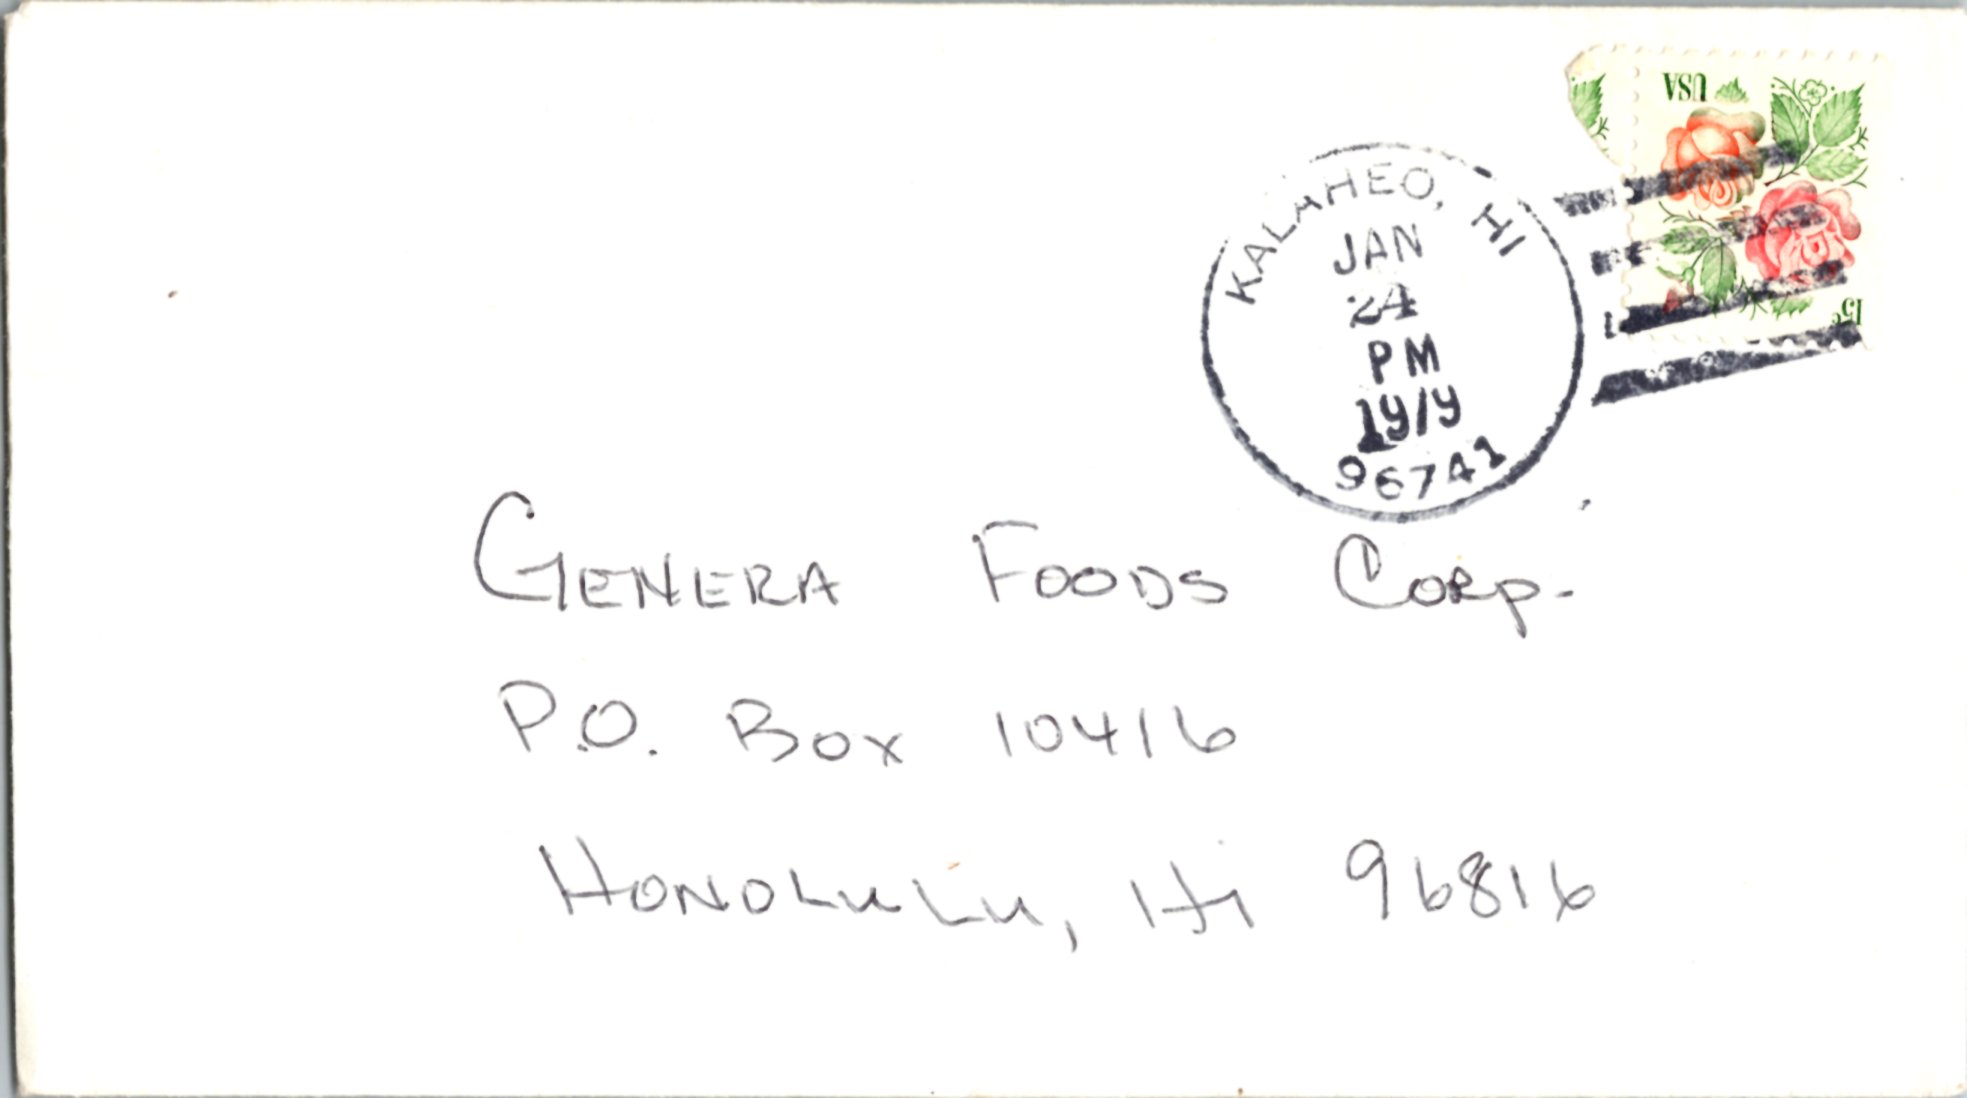 USA
15c
KALAHEO, HI
JAN
24
PM
1979
96741
GENERA FOODS CORP.
P.O. BOX 10416
HONOLULU, HI 96816